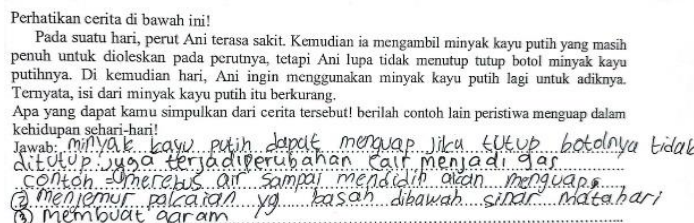 Perhatikan cerita di bawah ini!
Pada suatu hari, perut Ani terasa sakit. Kemudian ia mengambil minyak kayu putih yang masih
penuh untuk dioleskan pada perutnya, tetapi Ani lupa tidak menutup tutup botol minyak kayu
putihnya. Di kemudian hari, Ani ingin menggunakan minyak kayu putih lagi untuk adiknya.
Ternyata, isi dari minyak kayu putih itu berkurang.
Apa yang dapat kamu simpulkan dari cerita tersebut! berilah contoh lain peristiwa menguap dalam
kehidupan sehari-hari!
Jawab: minyak kayu putih dapat menguap jika tutup botolnya tidak
ditutup. juga terjadi perubahan cair menjadi gas
contoh = ① merebus air sampai mendidih akan menguap
② menjemur pakaian yg basah dibawah sinar matahari
③ membuat garam